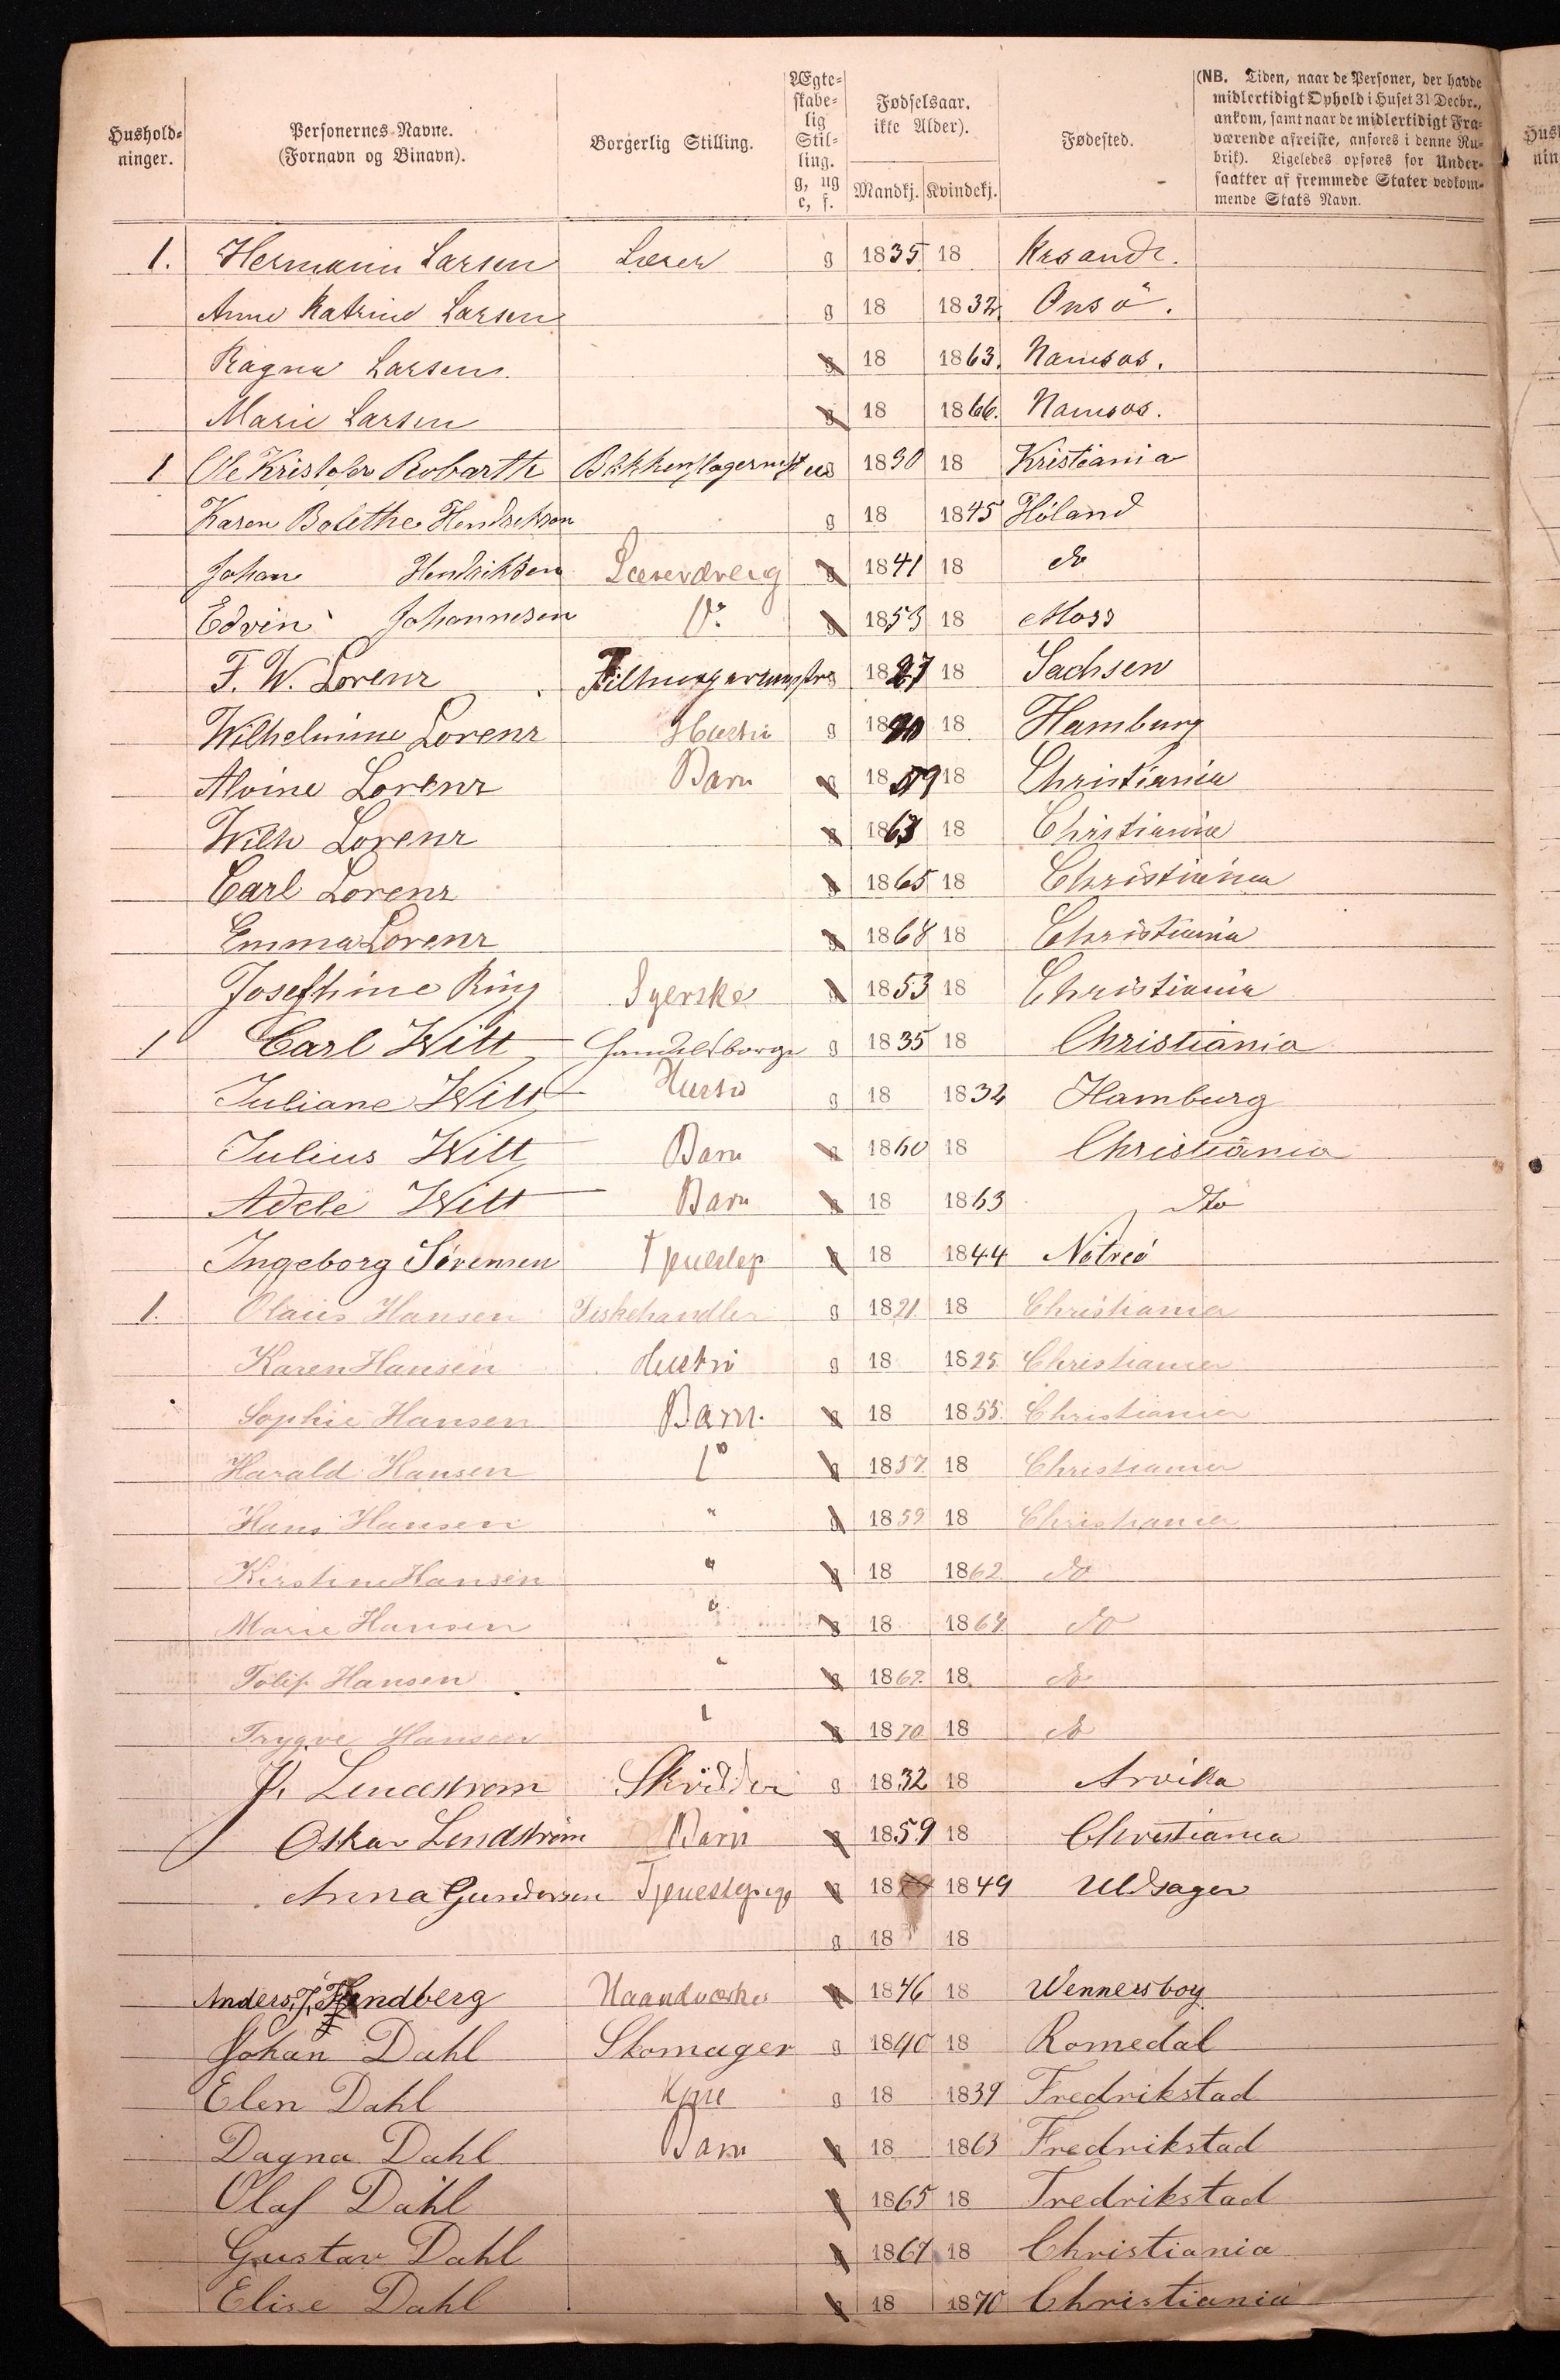 Hushold-
ninger.
Personernes Navne.
(Fornavn og Binavn).
Borgerlig Stilling.
Ægte-
skabe-
lig
Stil-
ling.
g, ug
e, f.
Fødselsaar.
ikke Alder).
Mandkj. Kvindekj.
Fødested.
(NB. Tiden, naar de Personer, der havde
midlertidigt Ophold i Huset 31 Decbr.,
ankom, samt naar de midlertidigt Fra-
værende afreiste, anføres i denne Ru-
brik). Ligeledes opføres for Under-
saatter af fremmede Stater vedkom-
mende Stats Navn.
1. Hermann Larsen Lærer g 1835 18 Krsand.
Anne Katrine Larsen g 18 1832 Onsö.
Ragna Larsen g 18 1863. Namsos.
Marie Larsen g 18 1866. Namsos.
1 Ole Kristofer Robarth 1830 18 Kristiania
Karen Bolethe Hendriksen g 18 1845 Höland
Johan Hendriksen g 1841 18 do
Edvin Johannesen Do g 1853 18 Moss
F. W. Lorenz g 1827 18 Sachsen
Wilhelmine Lorenz Hustru g 18 18 Hamburg
Alvine Lorenz Barn g 1859 18 Christiania
Wilh Lorenz g 1863 18 Christiania
Carl Lorenz g 1865 18 Christiania
Emma Lorenz g 1868 18 Christiania
Josephine Ring Syerske g 1853 18 Christiania
1 Carl Witt Handelsborger g 1835 18 Christiania
Juliane Witt Hustru g 18 1832 Hamburg
Julius Witt Barn g 1860 18 Christiania
Adele Witt Barn g 18 1863 do
Ingeborg Sörensen g 18 1844 Nötreö
1. Olaus Hansen Fiskehandler g 1821. 18 Christiania
Karen Hansen Hustru g 18 1825 Christiania
Sophie Hansen Barn. g 18 1855. Christiania
Harald Hansen Do g 1857. 18 Christiania
Hans Hansen " g 1859 18 Christiania
Kirstine Hansen " g 18 1862 do
Marie Hansen " g 18 1864 do
Hansen " g 1867. 18 do
Trygve Hansen " g 1870 18 do
Lindström Skrædder g 1832 18 Arvika
Oskar Lindström Barn g 1859 18 Christiania
Anna Gundersen Tjenestepige g 18 1849 Uldsager
g 18 18
Anders J. Haandværker g 1846 18 Wennersborg
Johan Dahl Skomager g 1840 18 Romedal
Elen Dahl Kone g 18 1839 Fredrikstad
Dagna Dahl Barn g 18 1863 Fredrikstad
Olaf Dahl g 1865 18 Fredrikstad
Gustav Dahl g 1867 18 Christiania
Elise Dahl g 18 1870 Christiania